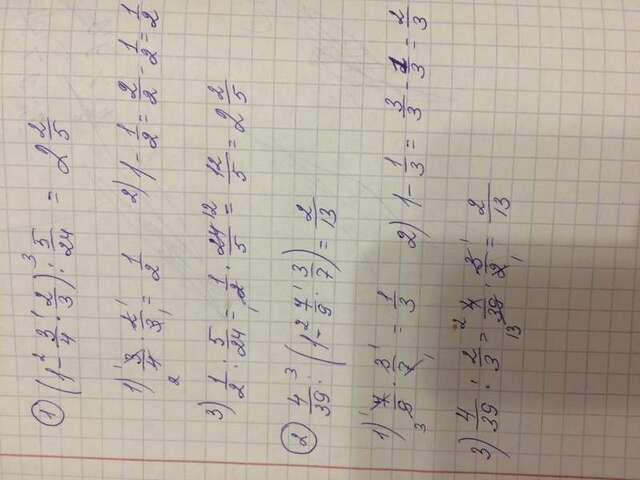 ① (1 -² 3/4 ·¹ 2/3) :³ 5/24 = 2 2/5
1) 3/4 · 2/3 = 1/2 2) 1 - 1/2 = 2/2 - 1/2 = 1/2
3) 1/2 : 5/24 = 1/2 · 24/5 = 12/5 = 2 2/5
② 4/39 :³ (1 -² 7/9 ·¹ 3/7) = 2/13
1) 7/9 · 3/7 = 1/3 2) 1 - 1/3 = 3/3 - 1/3 = 2/3
3) 4/39 : 2/3 = 4/39 · 3/2 = 2/13